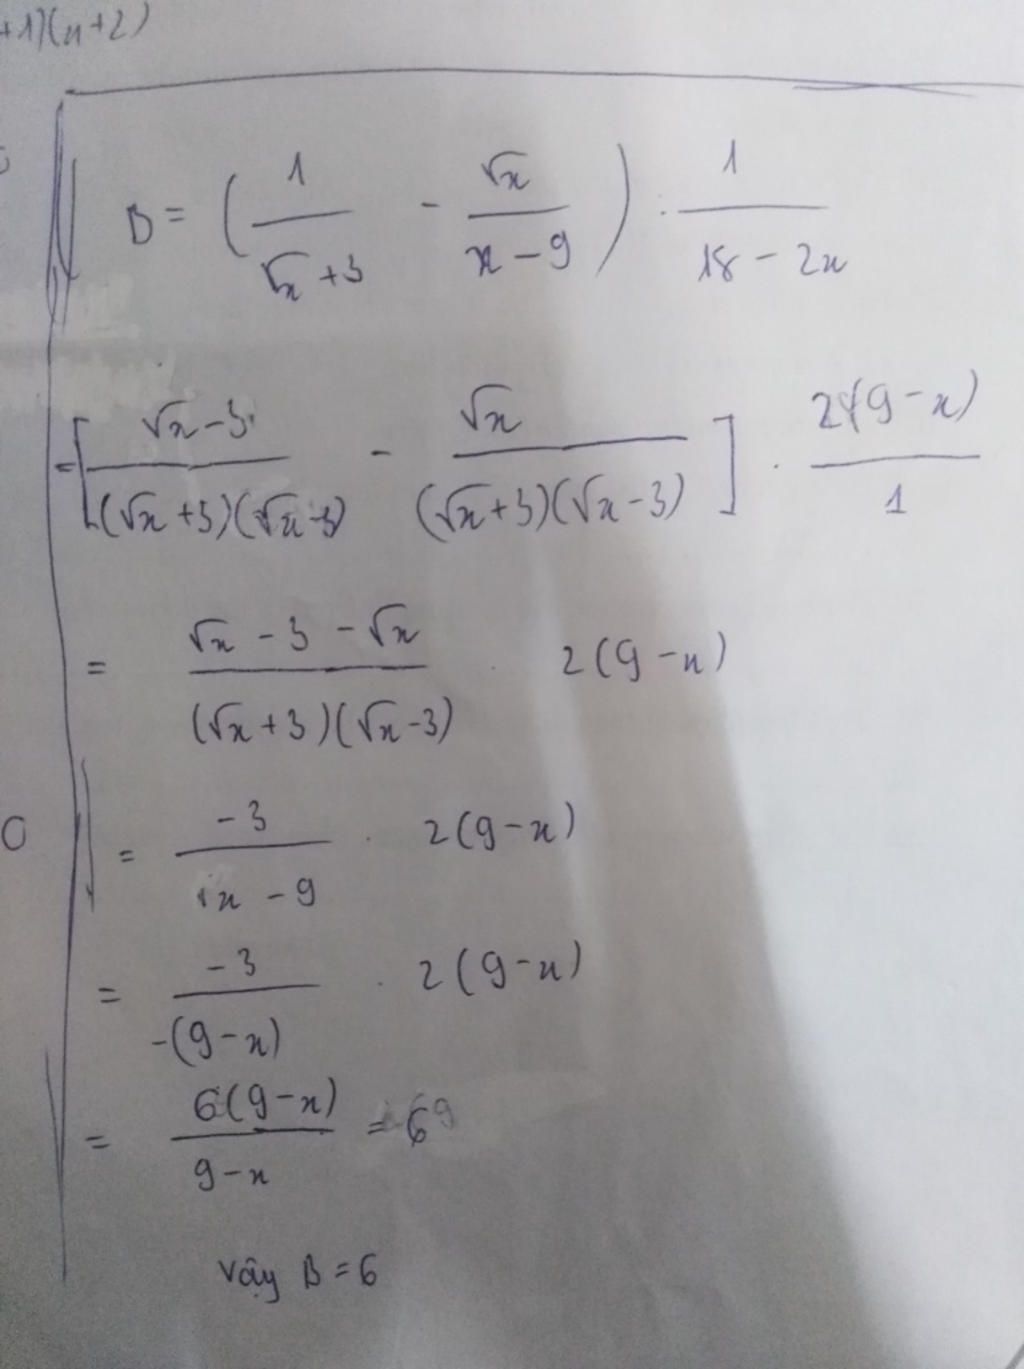 +1)(x+2)
B = (1/(√x + 3) - √x/(x - 9)) : 1/(18 - 2x)
= [(√x - 3)/((√x + 3)(√x - 3)) - √x/((√x + 3)(√x - 3))] . 2(9 - x)/1
= (√x - 3 - √x)/((√x + 3)(√x - 3)) . 2(9 - x)
0
= -3/(x - 9) . 2(9 - x)
= -3/(-(9 - x)) . 2(9 - x)
= 6(9 - x)/(9 - x) = 6
Vậy B = 6